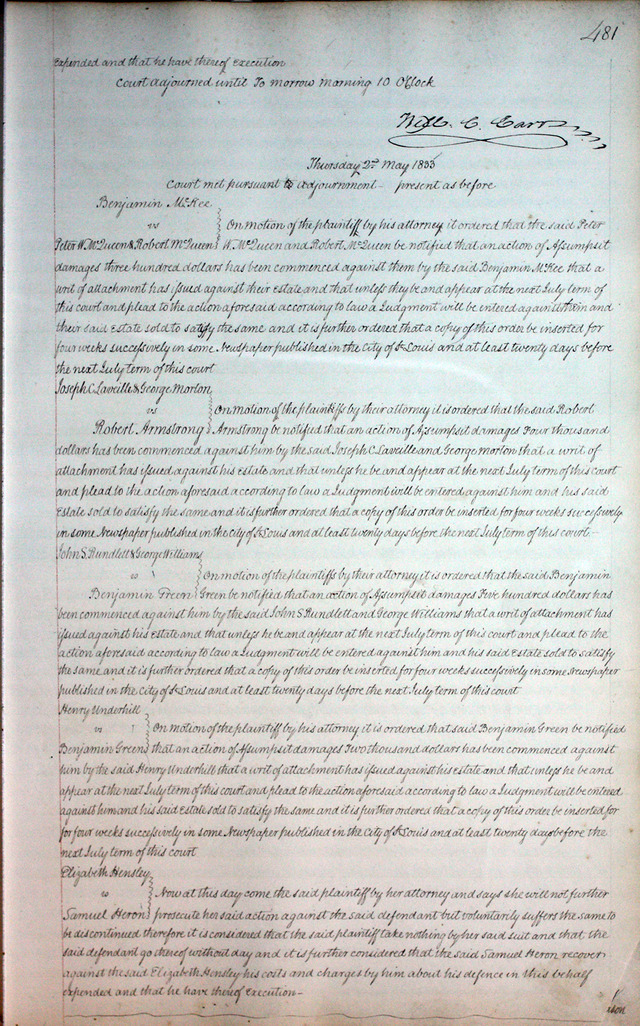 481
expended and that he have thereof execution
Court adjourned until To morrow morning 10 OClock
Will. C. Carr
Thursday 2nd May 1833
Court met pursuant to adjournment – present as before
Benjamin McKee
vs On motion of the plaintiff by his attorney it ordered that the said Peter
Peter W. McQueen & Robert McQueen W. McQueen and Robert McQueen be notified that an action of Assumpsit
damages three hundred dollars has been commenced against them by the said Benjamin McKee that a
writ of attachment has issued against their Estate and that unless they be and appear at the next July term of
this court and plead to the action aforesaid according to law a Judgment will be entered against them and
their said Estate sold to satisfy the same and it is further ordered that a copy of this order be inserted for
four weeks successively in some Newspaper published in the City of St Louis and at least twenty days before
the next July term of this court
Joseph C Laveille & George Morton
vs On motion of the plaintiffs by their attorney it is ordered that the said Robert
Robert Armstrong Armstrong be notified that an action of Assumpsit damages Four thousand
dollars has been commenced against him by the said Joseph C Laveille and George Morton that a writ of
attachment has issued against his Estate and that unless he be and appear at the next July term of this court
and plead to the action aforesaid according to law a Judgment will be entered against him and his said
Estate sold to satisfy the same and it is further ordered that a copy of this order be inserted for four weeks successively
in some Newspaper published in the City of St Louis and at least twenty days before the next July term of this court –
John S Rundlett & George Williams
vs On motion of the plaintiffs by their attorney it is ordered that the said Benjamin
Benjamin Green Green be notified that an action of Assumpsit damages Five hundred dollars has
been commenced against him by the said John S Rundlett and George Williams that a writ of attachment has
issued against his Estate and that unless he be and appear at the next July term of this court and plead to the
action aforesaid according to law a Judgment will be entered against him and his said Estate sold to satisfy
the same and it is further ordered that a copy of this order be inserted for four weeks successively in some Newspaper
published in the City of St Louis and at least twenty days before the next July term of this court
Henry Underhill
vs On motion of the plaintiff by his attorney it is ordered that said Benjamin Green be notified
Benjamin Green that an action of Assumpsit damages Two thousand dollars has been commenced against
him by the said Henry Underhill that a writ of attachment has issued against his Estate and that unless he be and
appear at the next July term of this court and plead to the action aforesaid according to law a Judgment will be entered
against him and his said Estate sold to satisfy the same and it is further ordered that a copy of this order be inserted for
for four weeks successively in some Newspaper published in the City of St Louis and at least twenty days before the
next July term of this court
Elizabeth Hensley
vs Now at this day come the said plaintiff by her attorney and says she will not further
Samuel Heron prosecute her said action against the said defendant but voluntarily suffers the same to
be discontinued therefore it is considered that the said plaintiff take nothing by her said suit and that the
said defendant go thereof without day and it is further considered that the said Samuel Heron recover
against the said Elizabeth Hensley his costs and charges by him about his defence in this behalf
expended and that he have thereof execution –